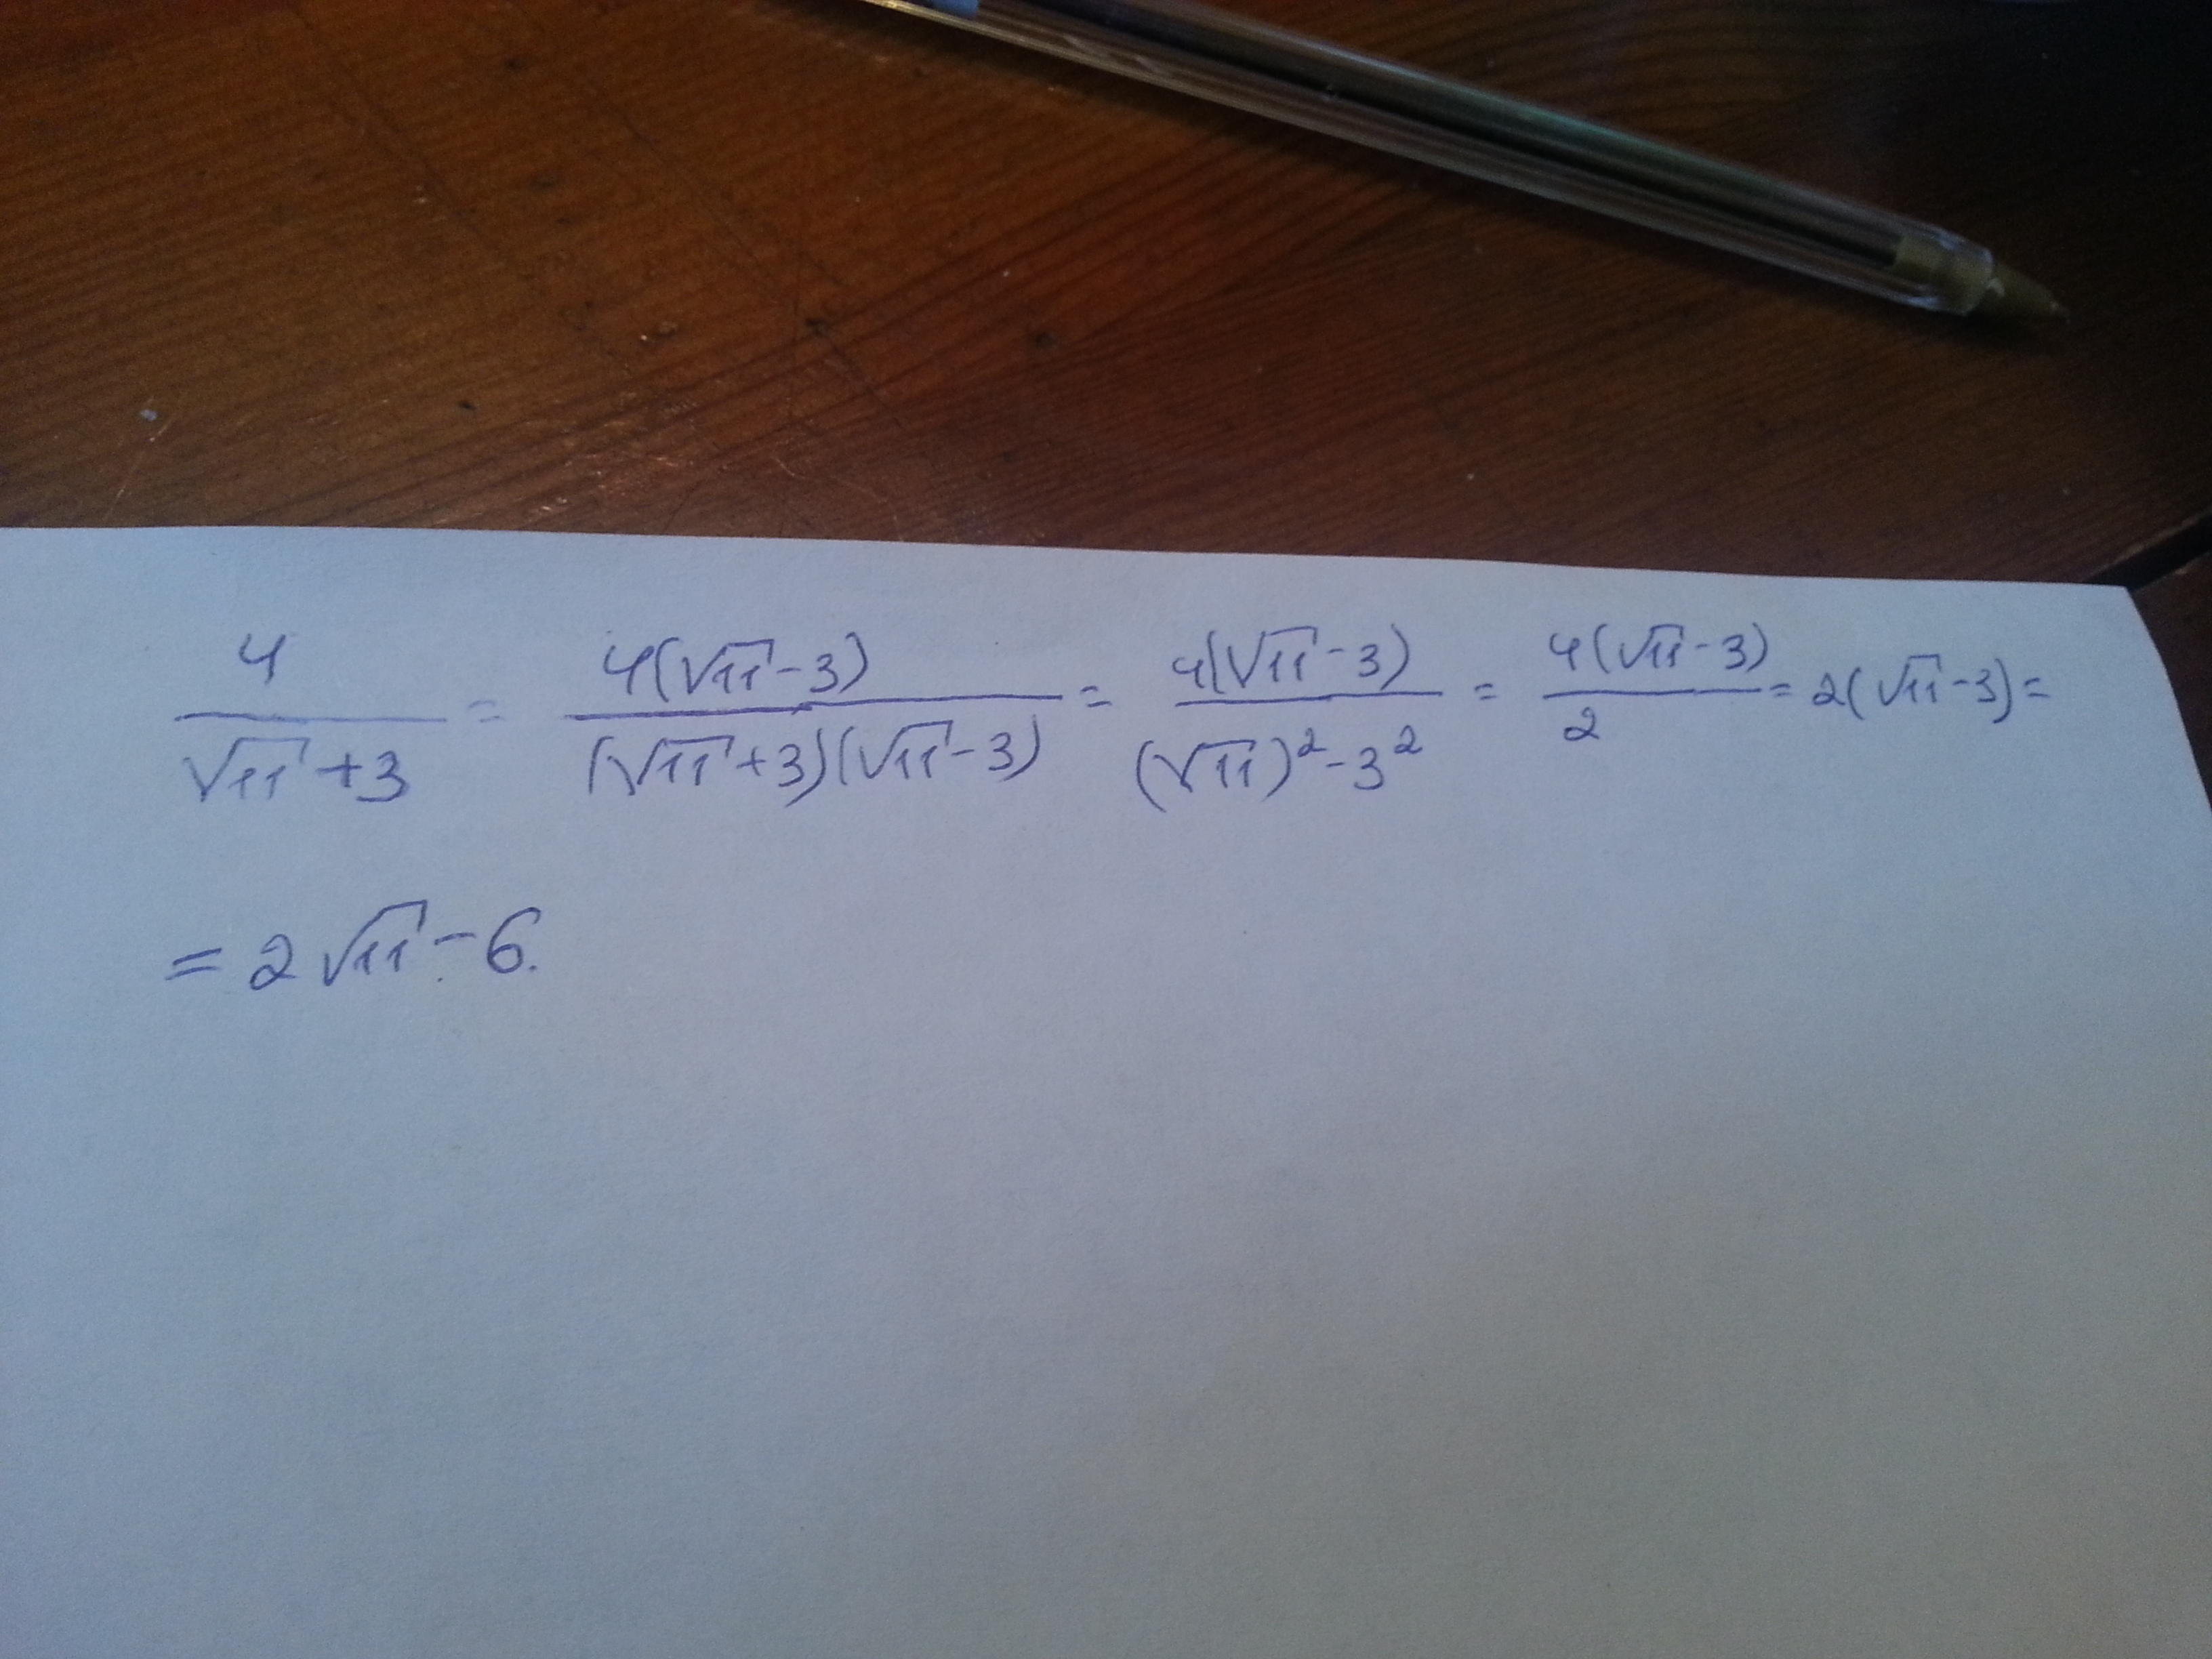 4/(√11+3) = 4(√11-3)/((√11+3)(√11-3)) = 4(√11-3)/((√11)²-3²) = 4(√11-3)/2 = 2(√11-3) =
= 2√11-6.